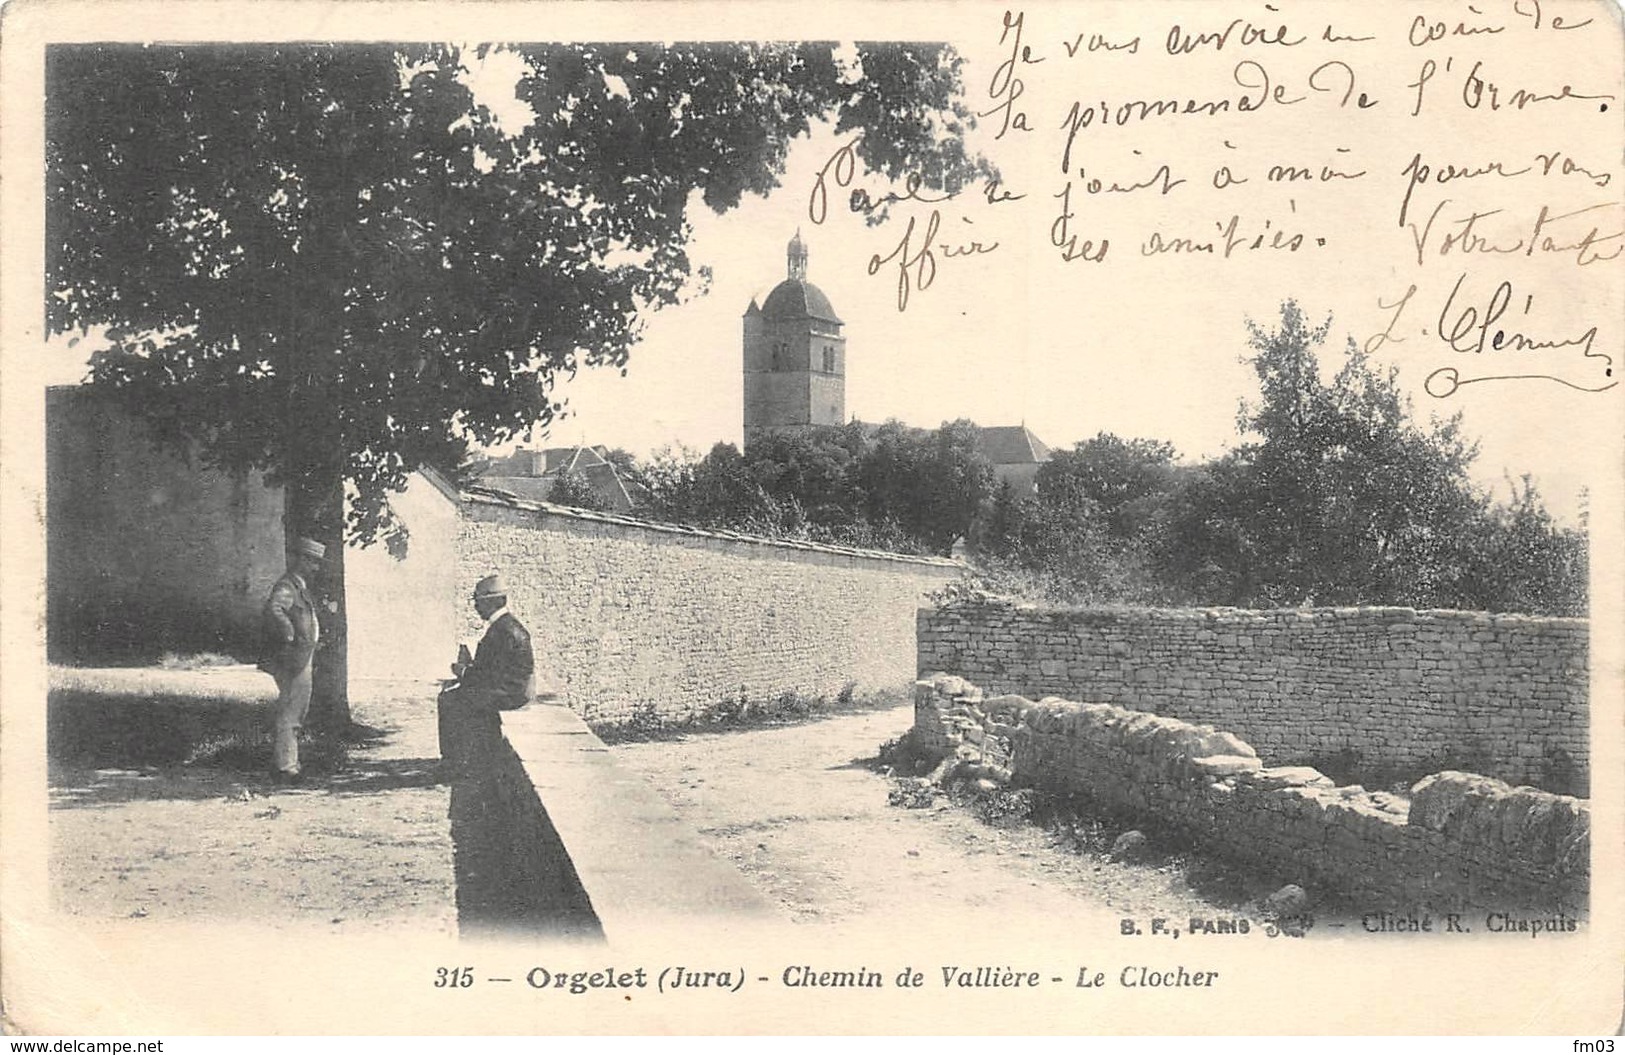 Je vous envoie un coin de
la promenade de l'Orme.
Paul se joint à moi pour vous
offrir ses amitiés. Votre tante
L. Clément
B. F., PARIS — Cliché R. Chapuis
315 — Orgelet (Jura) - Chemin de Vallière - Le Clocher
www.delcampe.net
fm03